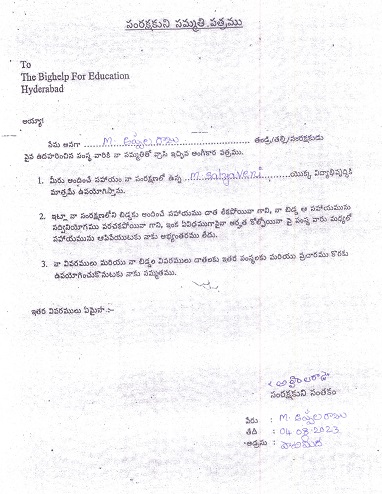 సంరక్షకుని సమ్మతి పత్రము
To
The Bighelp For Education
Hyderabad
అయ్యా!
మేము అనగా M. అప్పలరాజు తండ్రి/తల్లి/సంరక్షకుడు
పైన ఉదహరించిన సంస్థ వారికి నా సమ్మతితో వ్రాసి ఇచ్చిన అంగీకార పత్రము.
1. మీరు అందించే సహాయం నా సంరక్షణలో ఉన్న M. Satyaveni యొక్క విద్యాభివృద్ధికి
మాత్రమే ఉపయోగిస్తాను.
2. ఇట్లా నా సంరక్షణలోని బిడ్డకు అందించే సహాయము దాత లేకపోయినా గాని, నా బిడ్డ ఆ సహాయమును
సద్వినియోగము పరచకపోయినా గాని, ఇంక ఏవిధముగానైనా అర్హత కోల్పోయినా పై సంస్థ వారు మధ్యలో
సహాయమును ఆపివేయుటకు నాకు అభ్యంతరము లేదు.
3. నా వివరములు మరియు నా బిడ్డల వివరములు దాతలకు ఇతర సంస్థలకు మరియు ప్రచారము కొరకు
ఉపయోగించుకొనుటకు నాకు సమ్మతము.
ఇతర వివరములు ఏమైనా :-
సంరక్షకుని సంతకం
పేరు : M. అప్పలరాజు
తేది : 04.08.2023
అడ్రసు :